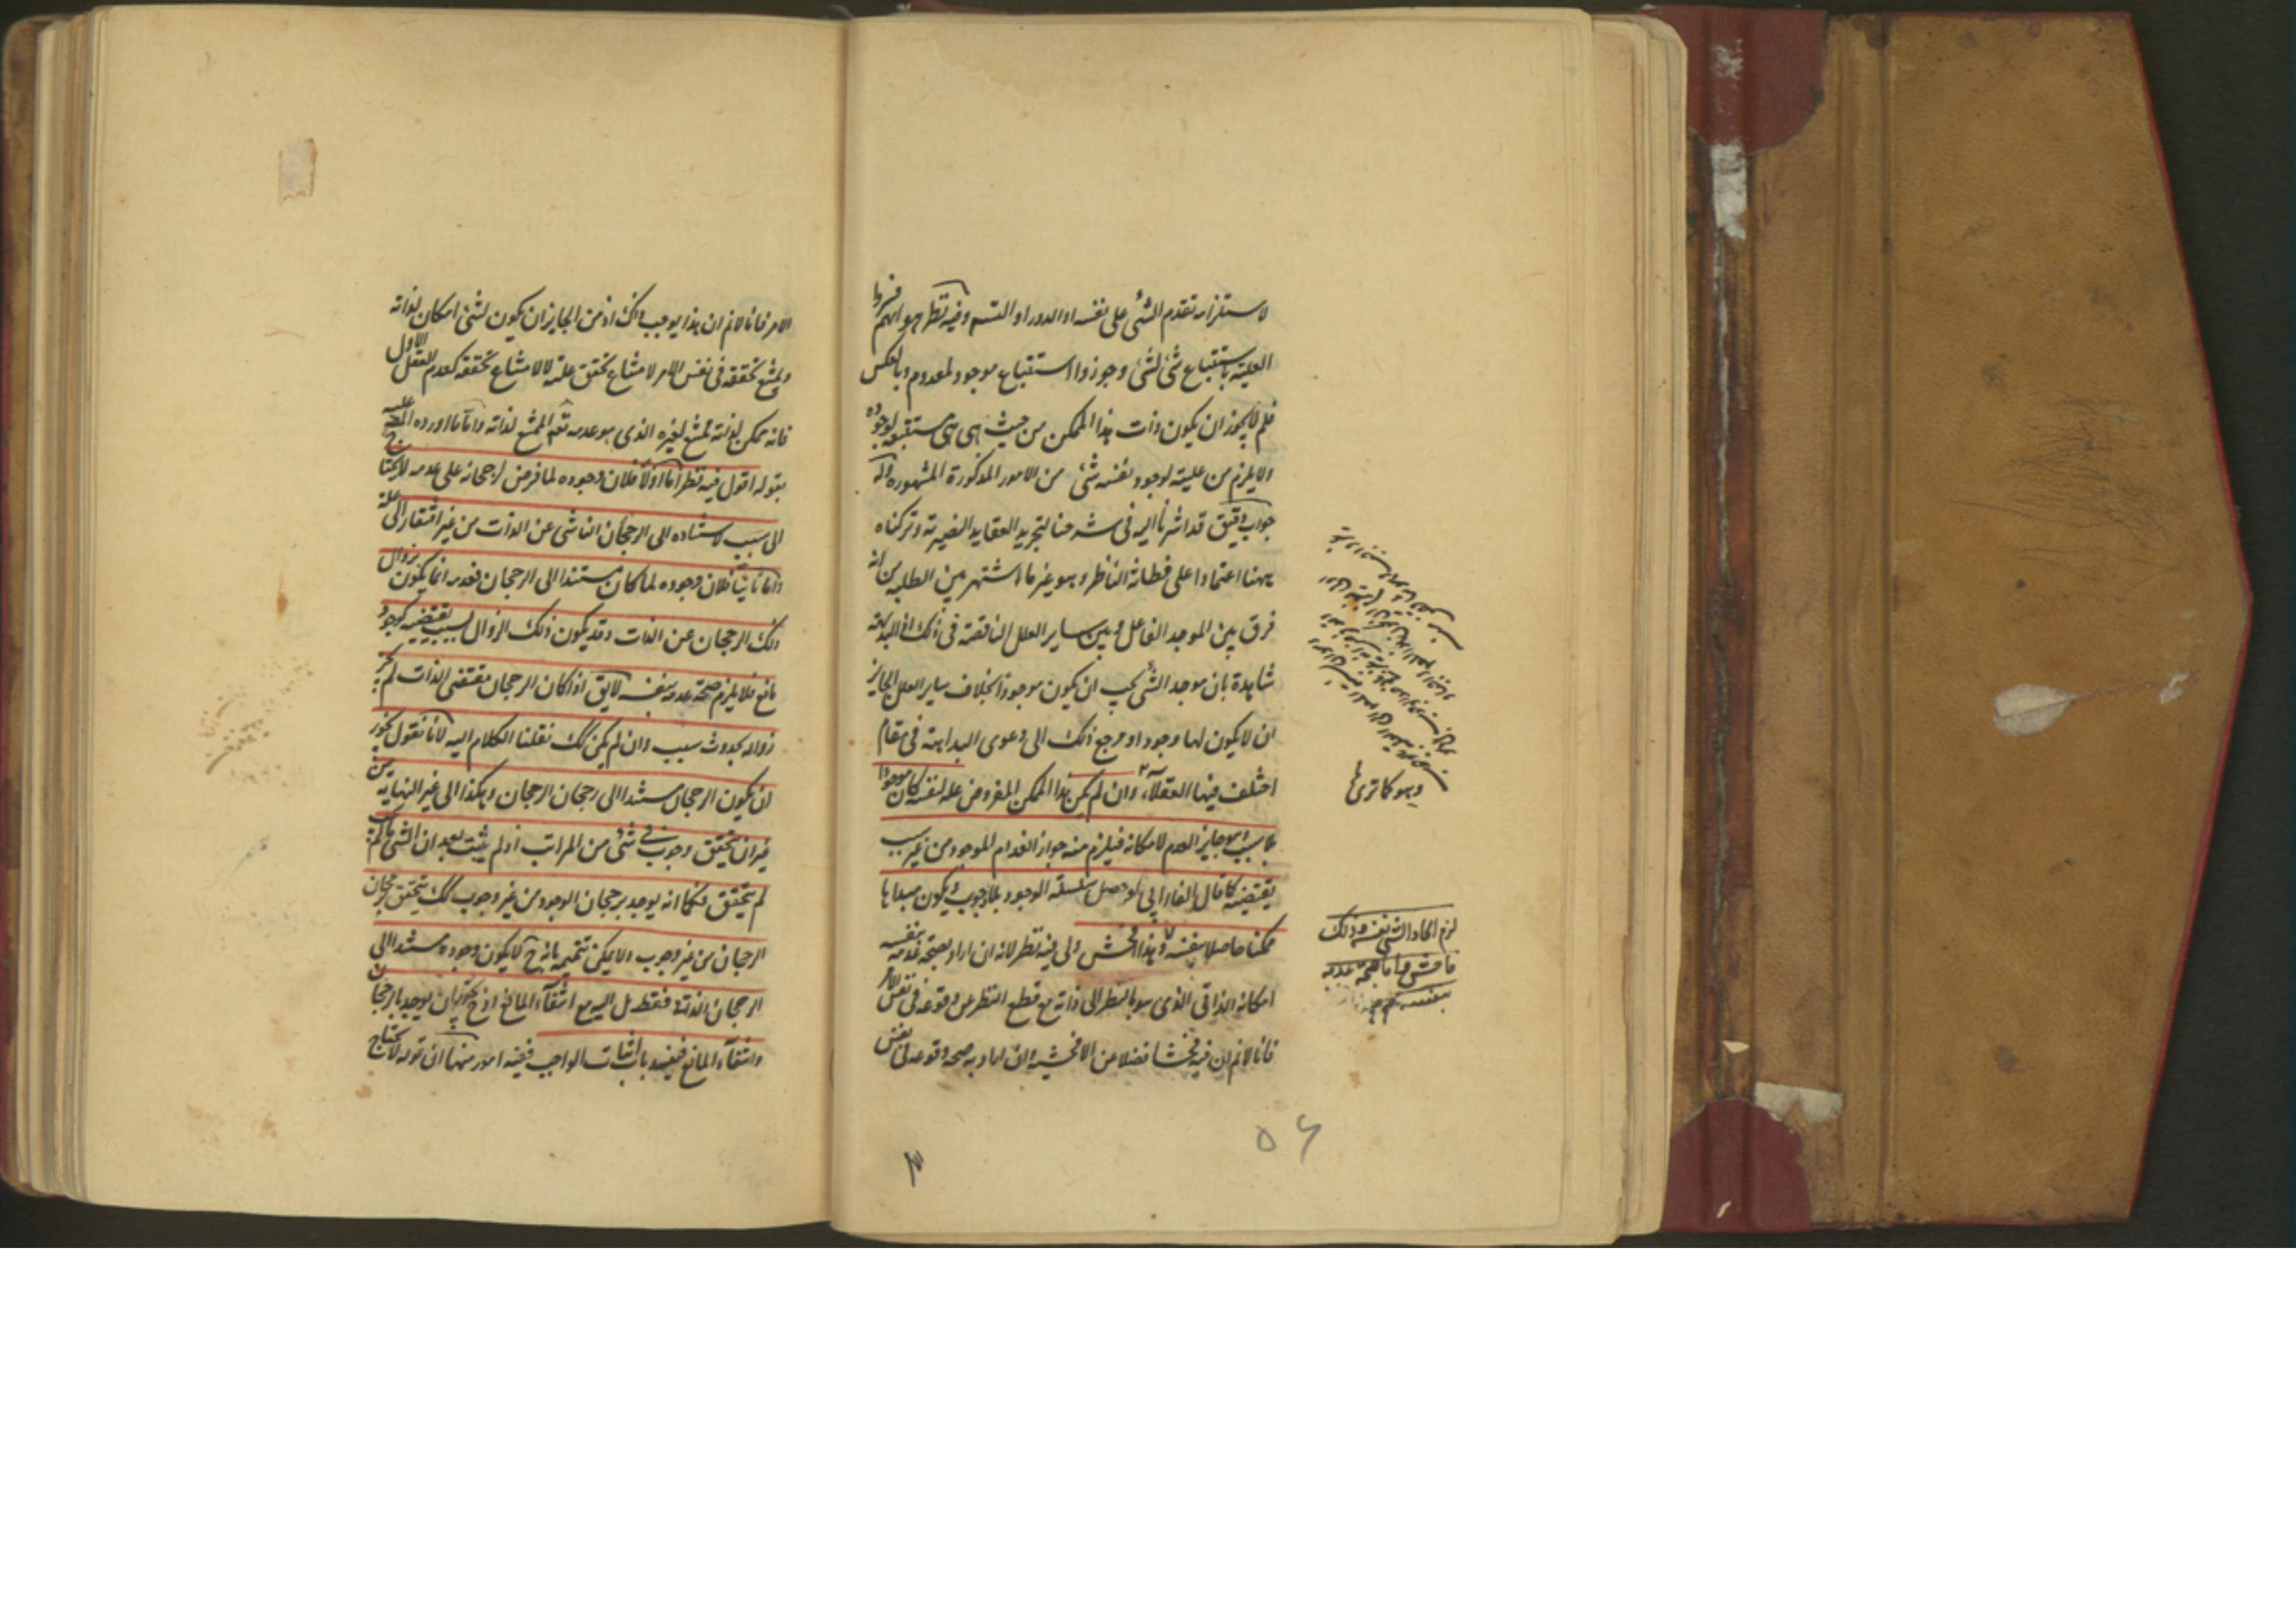 لاستلزامه تقدم الشئ على نفسه او الدور او التسم وفيه نظر هو انهم فسروا
العلية باستتباع شئ لشئ وجوزوا استتباع موجود لمعدوم وبالعكس
فلم لا يجوز ان يكون ذات هذا الممكن من حيث هى هى مستتبعه لوجوده
ولا يلزم من علية لوجود نفسه شئ من الامور المذكورة المشهوره وله
جواب دقيق قد اشرنا اليه فى شرحنا لتجريد العقايد النصيرية وتركناه
ههنا اعتمادا على فطانة الناظر وهو غير ما اشتهر بين الطلبه من انه
فرق بين الموجد الفاعل وبين ساير العلل الناقصة فى ذلك اذ البداهة
شاهدة بان موجد الشئ يجب ان يكون موجودا بخلاف ساير العلل لجايز
ان لا يكون لها وجود او مرجع ذلك الى دعوى البداهة فى مقام
اختلف فيها العقلآء وان لم يكن هذا الممكن المفروض علة لنفسه كان موجودا
بلا سبب وهو جايز العدم لامكانه فيلزم منه جواز انعدام الموجود من غير سبب
يقتضيه كما قال الفارابي لو حصل سلسلة الوجود بلا وجوب ويكون مبداها
ممكنا حاصلا بنفسه وهذا فحش ولى فيه نظر لانه ان اراد بصحة عدمه بنفسه
امكانه الذاتى الذى هو بالنظر الى ذاته مع قطع النظر عن وقوعه فى نفس الامر
فانا لا نم ان فيه فحشا فضلا عن الافحشيه وان اراد به صحه وقوعه فى نفس
وهو كما ترى
لزم ايجاد الشئ نفسه وذلك
فاحش واما صحة عدمه
بنفسه
٥٦
الامر فانا لا نم ان هذا يوجب ذلك اذ من الجايز ان يكون لشئ امكان لذاته
ويمتنع تحققه فى نفس الامر لامتناع تحقق علته لا لامتناع تحققه كعدم العقل الاول
فانه ممكن لذاته ممتنع لغيره الذى هو عدمه تعم الممتنع لذاته واما ما اورده عليه
بقوله اقول فيه نظر اما اولا فلان وجوده لما فرض رجحانه على عدمه لا يحتاج
الى سبب لاستناده الى الرجحان الناشى عن الذات من غير افتقار الى علة
واما ثانيا فلان وجوده لما كان مستندا الى الرجحان فعدمه انما يكون بزوال
ذلك الرجحان عن الذات وقد يكون ذلك الزوال لسبب يقتضيه كوجود
مانع فلا يلزم صحة عدمه بنفسه لا يق اذا كان الرجحان مقتضى الذات لم يجز
زواله بحدوث سبب وان لم يكن كك نقلنا الكلام اليه لانا نقول يجوز
ان يكون الرجحان مستندا الى رجحان الرجحان وهكذا الى غير النهايه من
غير ان يتحقق وجوب فى شئ من المراتب اذ لم يثبت بعد ان الشئ ما لم يجب
لم يتحقق فكما انه يوجد برجحان الوجود من غير وجوب كك يتحقق رجحان
الرجحان من غير وجوب ولا يمكن تتميمه بانه ح لا يكون وجوده مستندا الى
الرجحان الذاتى فقط بل اليه مع انتفآء المانع اذ ح يجوز ان يوجد بالرجحان
وانتفآء المانع فينسد باب اثبات الواجب ففيه امور منها ان قوله لا يحتاج